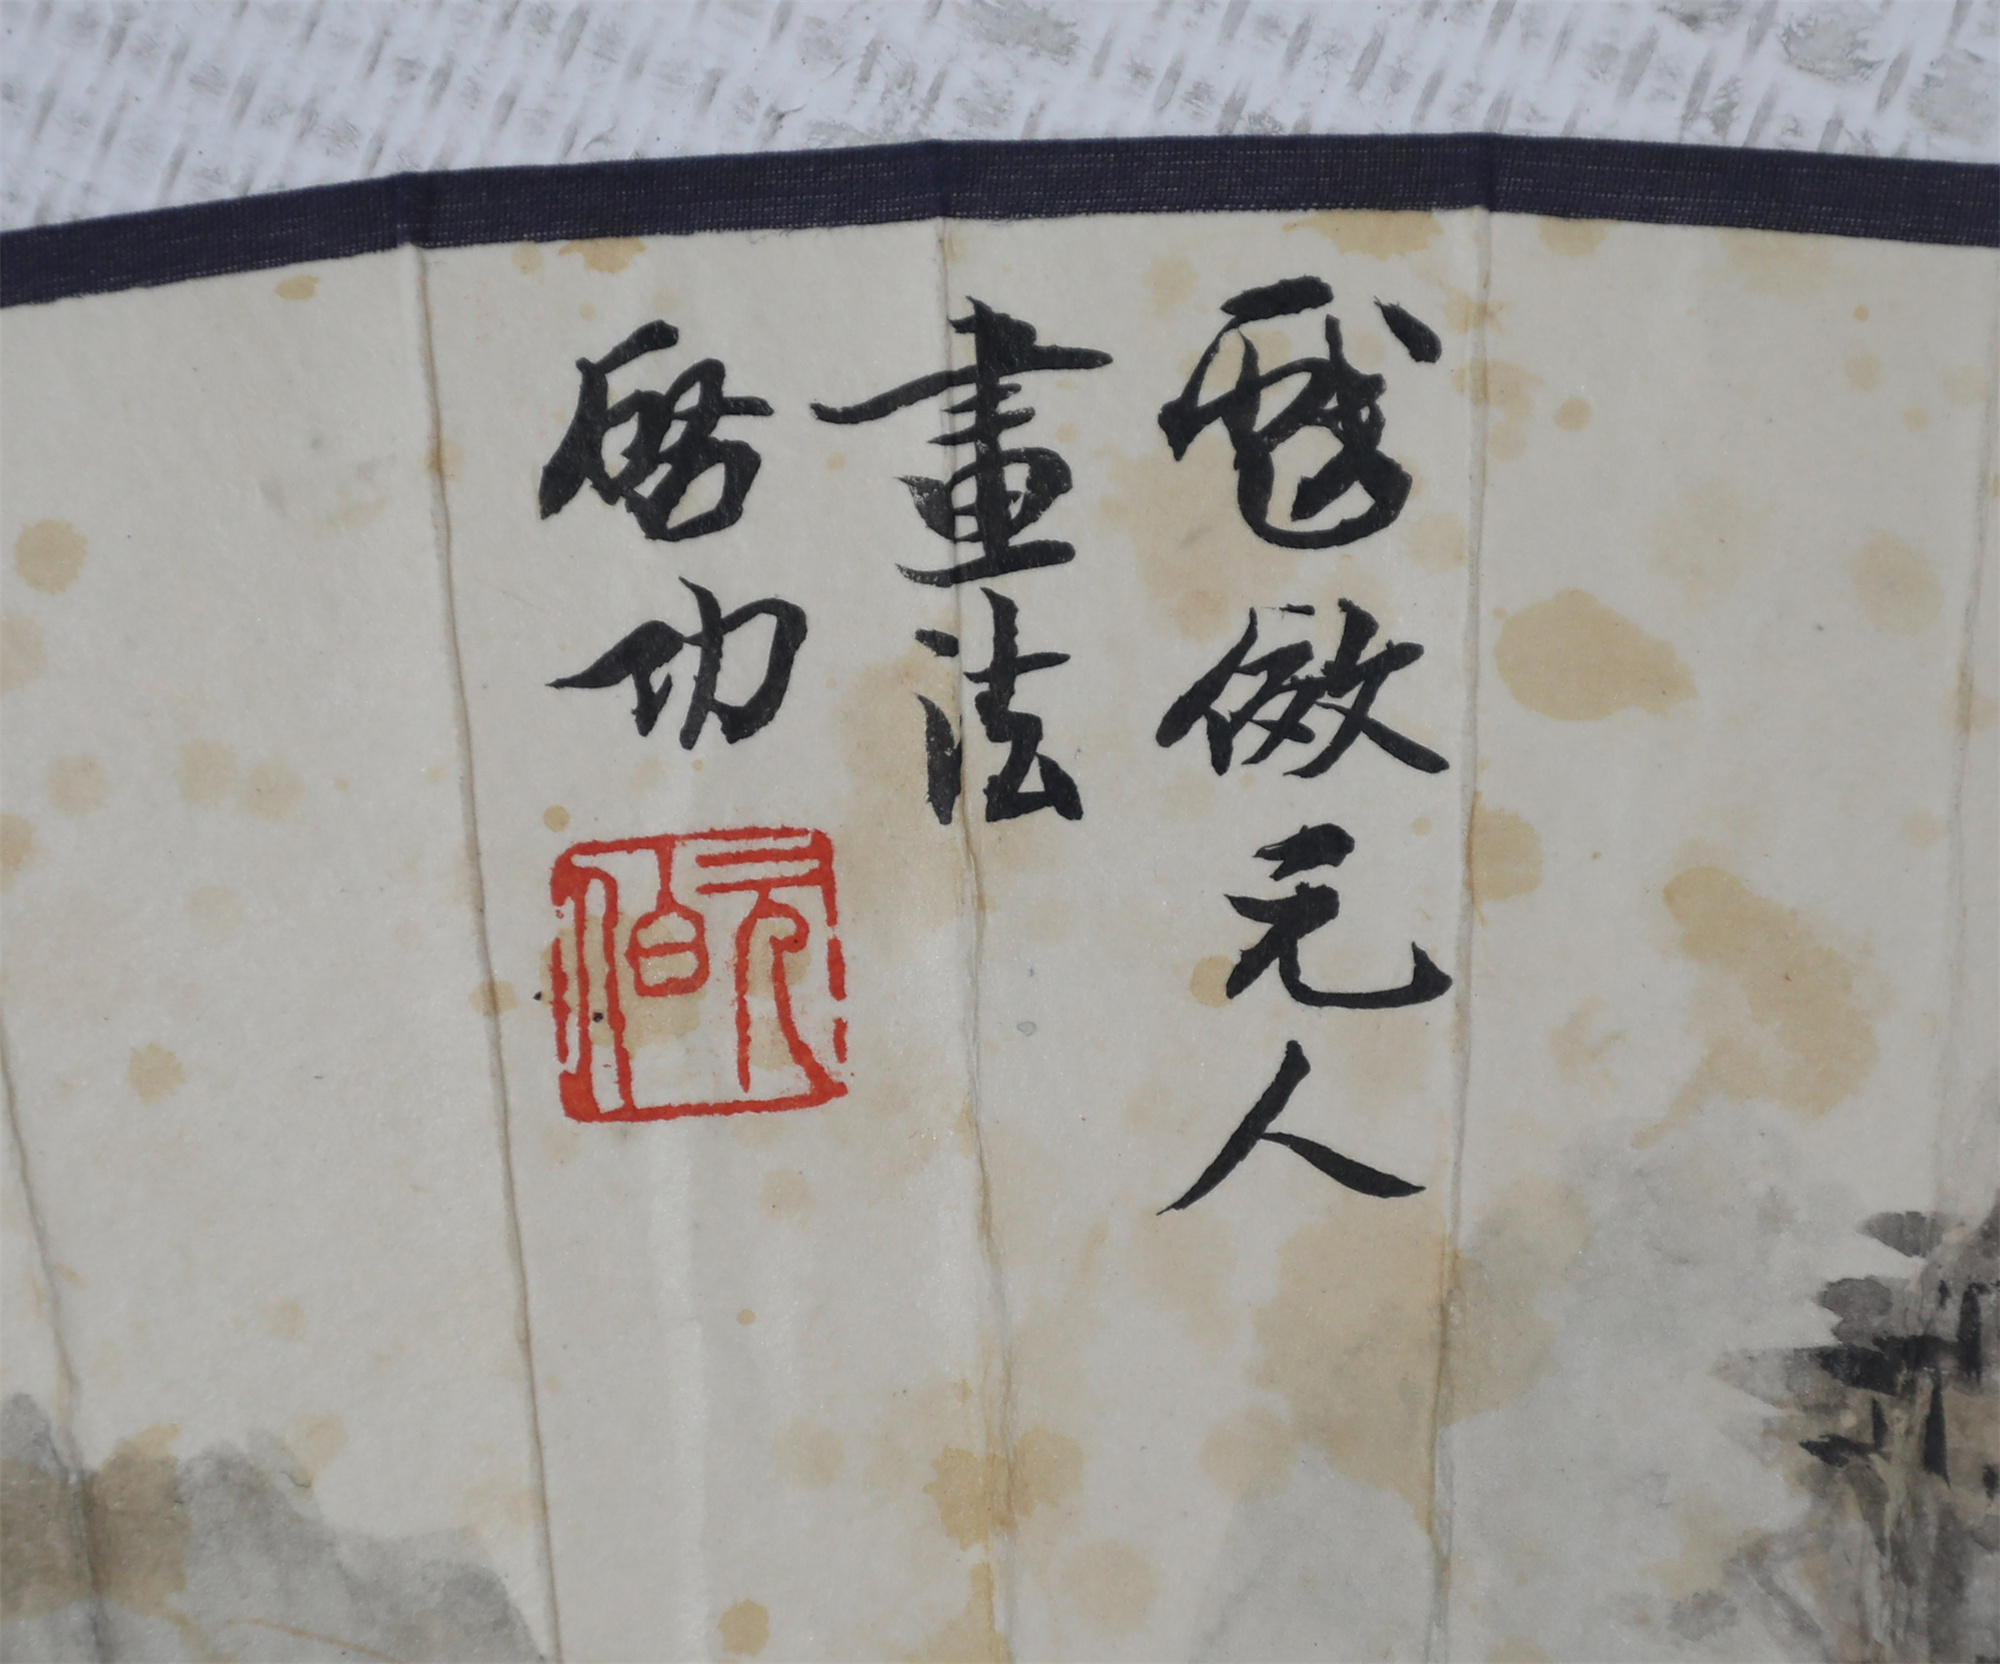 戲倣元人
畫法
啓功
元伯